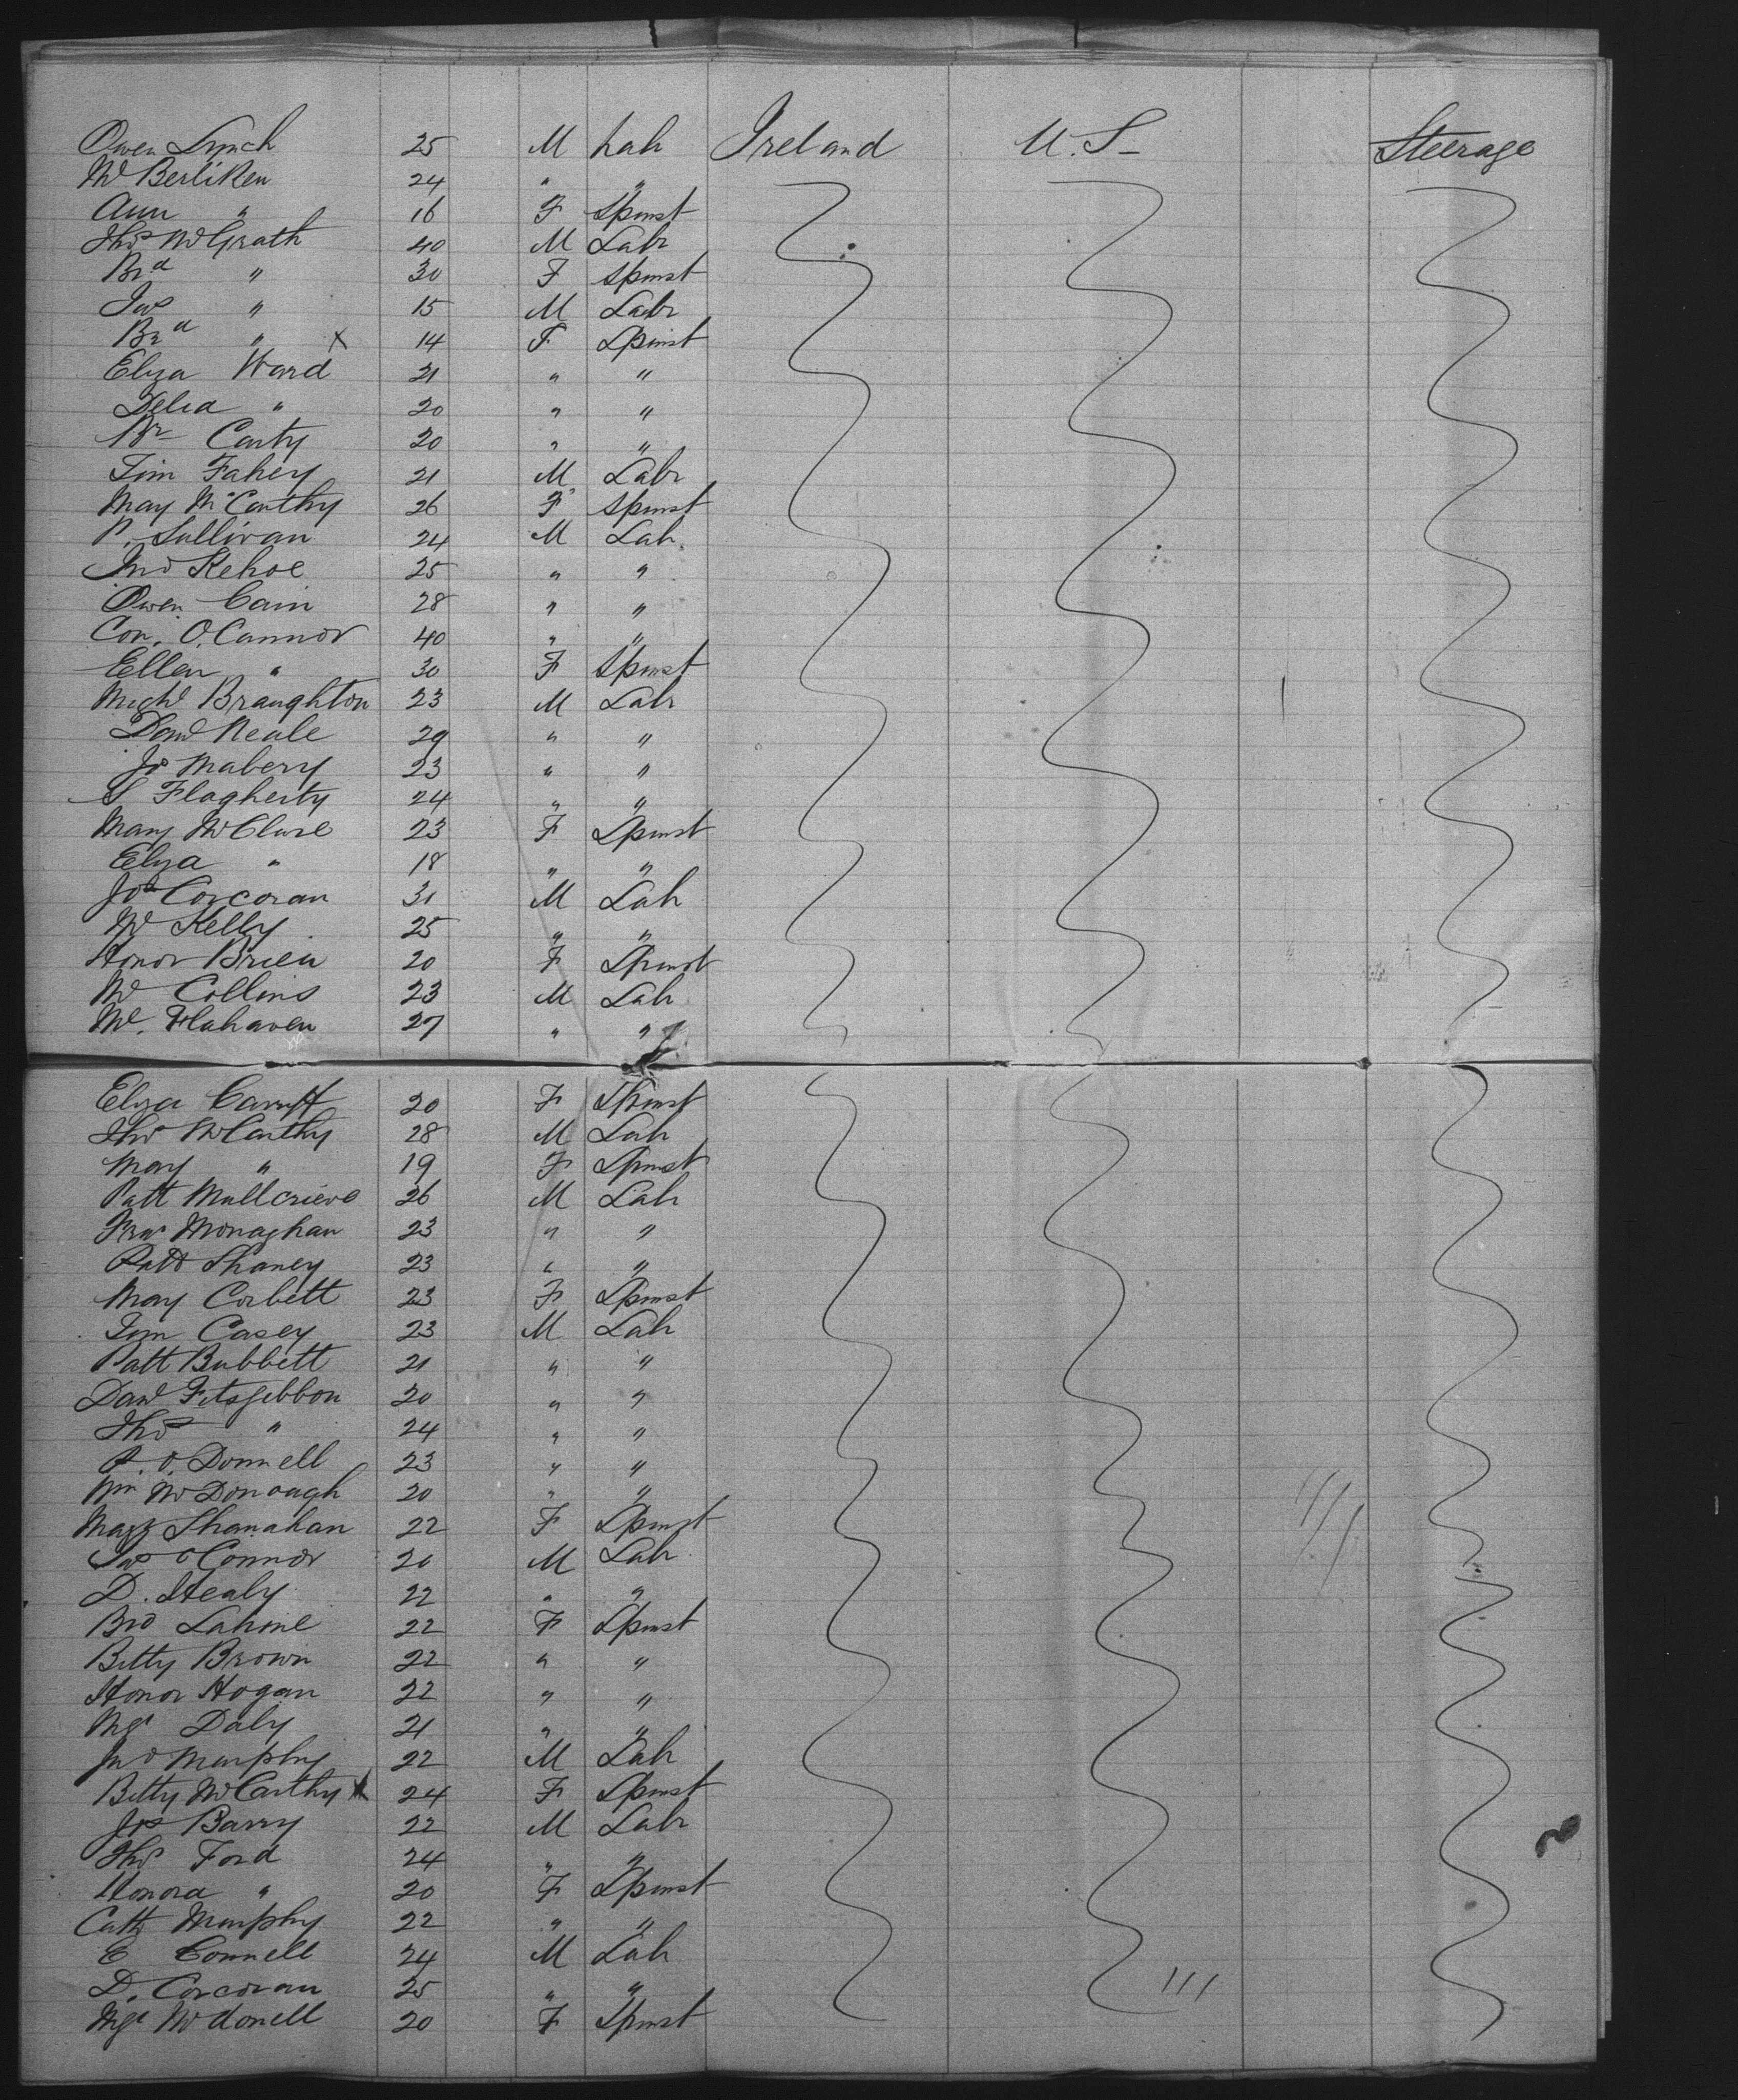 Owen Lynch 25 M Lab Ireland U.S. Steerage
Md Berliken 24 " "
Ann " 16 F Spinst
Thos McGrath 40 M Labr
Brd " 30 F Spinst
Jas " 15 M Labr
Brd " x 14 F Spinst
Eliza Ward 21 " "
Delia " 20 " "
Br Carty 20 " "
Tim Fahey 21 M Labr
May McCarthy 26 F Spinst
P. Sullivan 24 M Lab
Jno Kehoe 25 " "
Owen Cain 28 " "
Con. O.Connor 40 " "
Ellen " 30 F Spinst
Michl Braughton 23 M Labr
Danl Neale 29 " "
Js Mabery 23 " "
S Flagherty 24 " "
Mary McClure 23 F Spinst
Eliza " 18 " "
Jos Corcoran 31 M Lab
Md Kelly 25 " "
Honor Brien 20 F Spinst
Md Collins 23 M Lab
Ml. Flahaven 27 " "
Eliza 20 F Spinst
Thos McCarthy 28 M Lab
May " 19 F Spinst
Patt Mullcrieve 26 M Lab
Fras Monaghan 23 " "
Patt Shaney 23 " "
May Corbett 23 F Spinst
Tom Casey 23 M Lab
Patt Bubbett 21 " "
Danl Fitsgibbon 20 " "
Thos " 24 " "
P. O. Donnell 23 " "
Wm McDonough 20 " "
Margt Shanahan 22 F Spinst
Jas O'Connor 20 M Lab
D. Healy 22 " "
Brd 22 F Spinst
Betty Brown 22 " "
Honor Hogan 22 " "
Mgt Daly 21 " "
Jno Murphy 22 M Lab
Betty McCarthy x 24 F Spinst
Jas Barry 22 M Labr
Thos Ford 24 " "
Honora " 20 F Spinst
Cath Murphy 22 " "
E Connell 24 M Lab
D. Corcoran 25 " "
Mgt McDonell 20 F Spinst